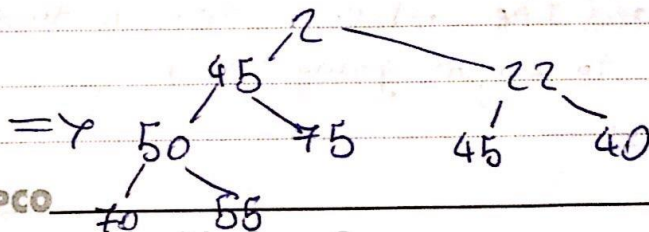 2
45 22
=> 50 75 45 40
PCO 70 55